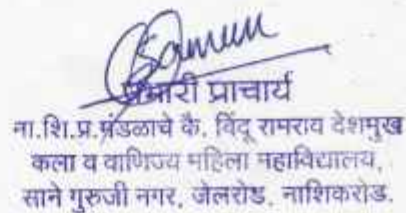 प्रभारी प्राचार्य
ना.शि.प्र.मंडळाचे कै. विंदू रामराव देशमुख
कला व वाणिज्य महिला महाविद्यालय,
साने गुरुजी नगर, जेलरोड, नाशिकरोड.